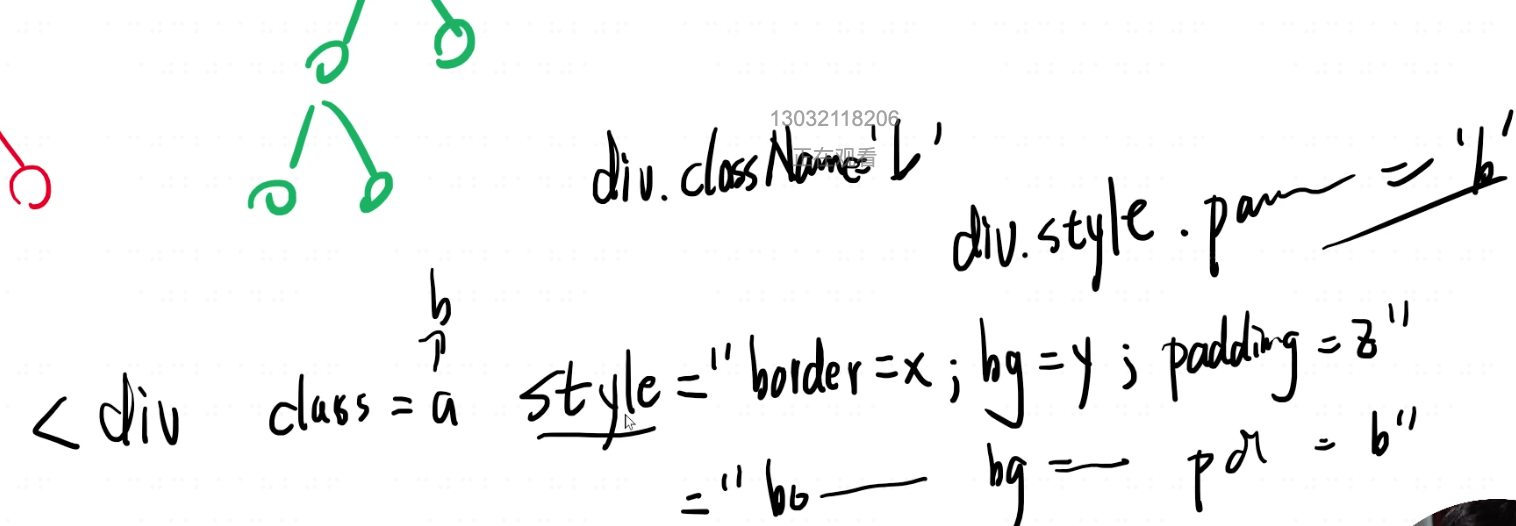 13032118206
正在观看
div.className='b'
div.style.pa = 'b'
b
<div class=a style="border=x; bg=y; padding=z"
="bo bg= pd = b"